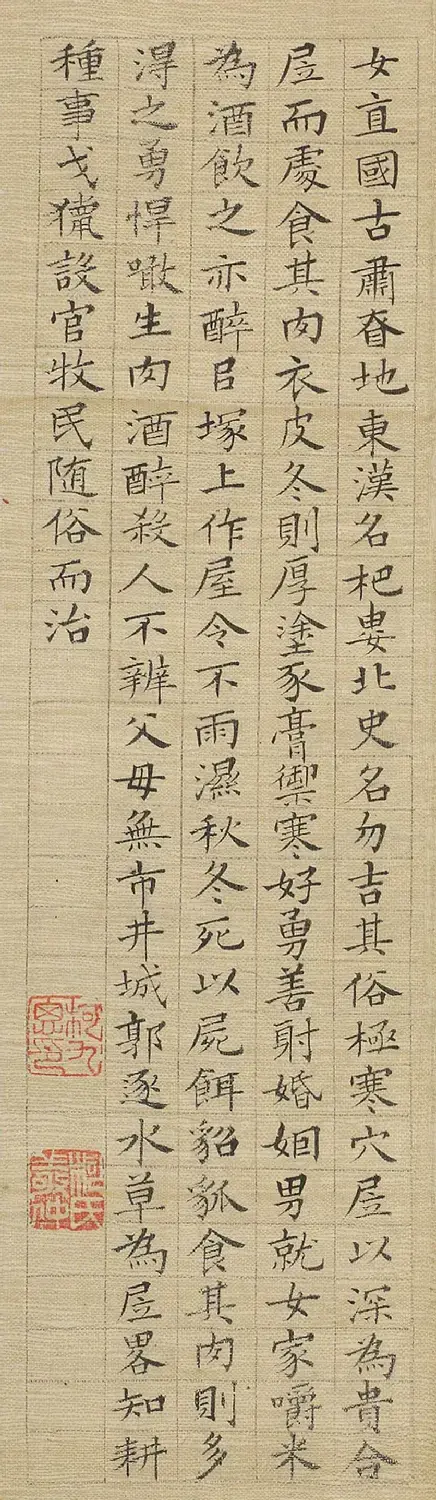 女直國古肅昚地東漢名杷婁北史名勿吉其俗極寒穴㞐以深為貴合
㞐而處食其肉衣皮冬則厚塗豕膏禦寒好勇善射婚姻男就女家嚼米
為酒飲之亦醉㠯塚上作屋令不雨濕秋冬死以屍餌貂狐食其肉則多
淂之勇悍噉生肉酒醉殺人不辨父母無市井城郭逐水草為㞐畧知耕
種事弋獵設官牧民随俗而治
柯九思印